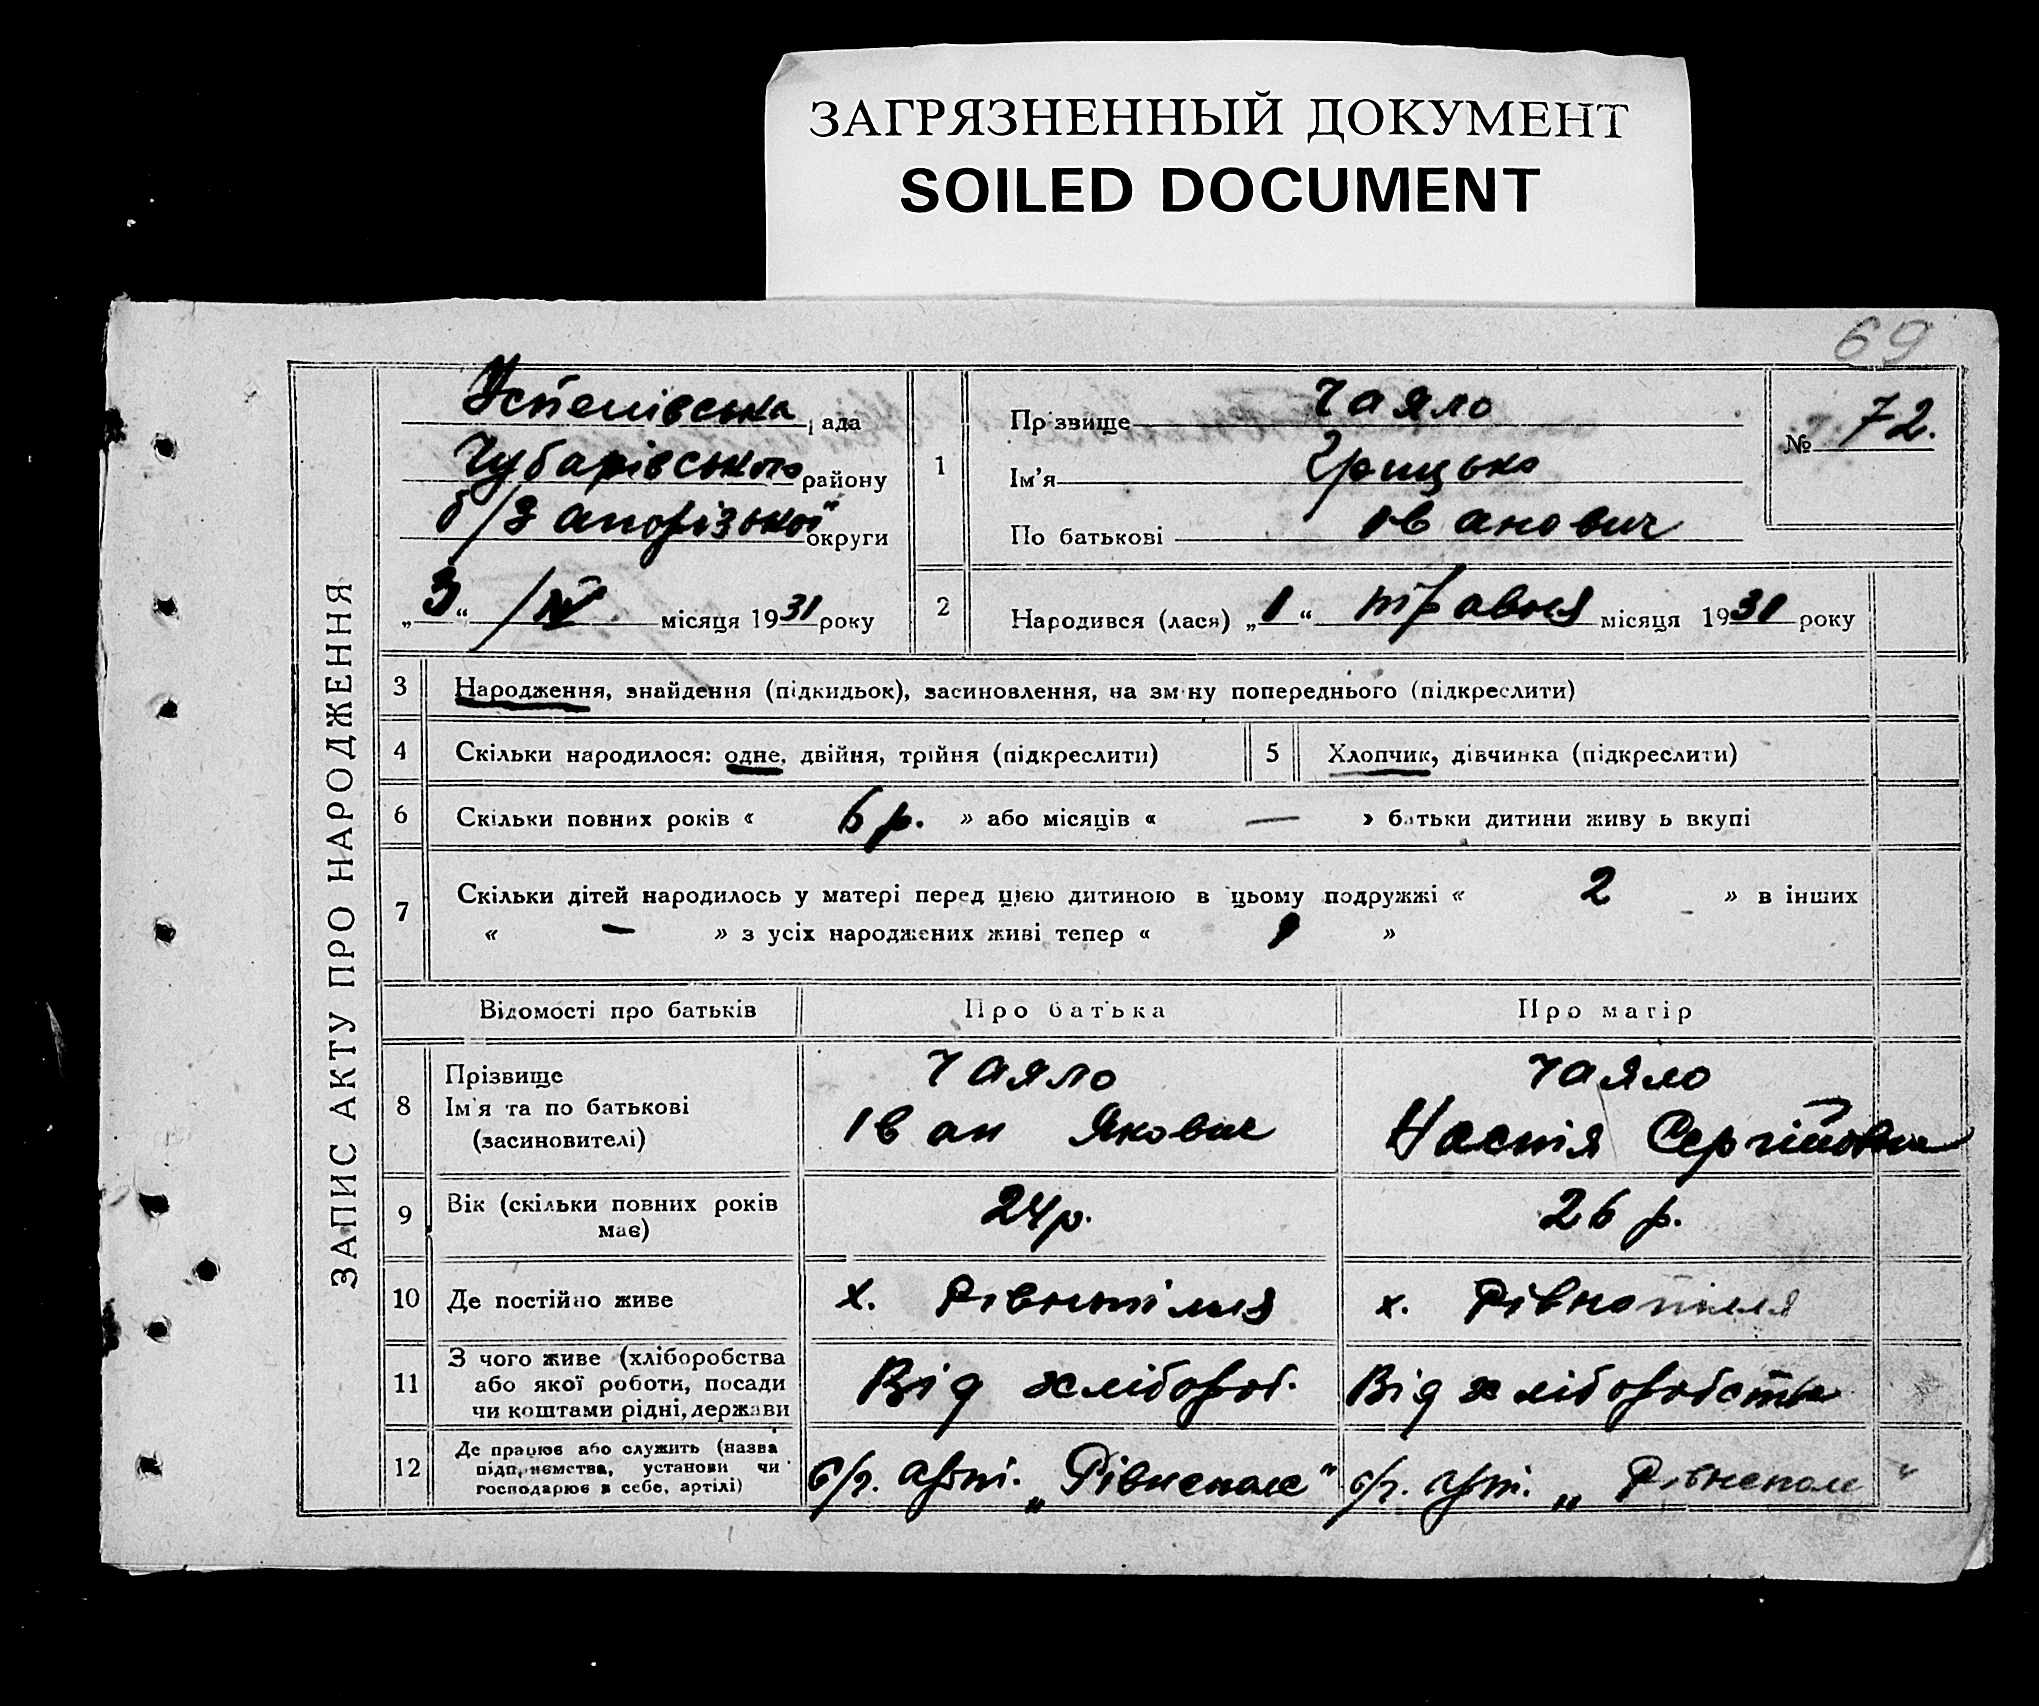 ЗАГРЯЗНЕННЫЙ ДОКУМЕНТ
SOILED DOCUMENT
69
ЗАПИС АКТУ ПРО НАРОДЖЕННЯ
Успенівська рада
Чубарівського району
б/Запорізької округи
„3“ /IV місяця 1931 року
1
Прізвище Чаяло
Ім'я Грицько
По батькові Іванович
№ 72.
2
Народився (лася) „1“ травня місяця 1931 року
3 Народження, знайдення (підкидьок), засиновлення, на зміну попереднього (підкреслити)
4 Скільки народилося: одне, двійня, трійня (підкреслити)
5 Хлопчик, дівчинка (підкреслити)
6 Скільки повних років « 6 р. » або місяців « — » батьки дитини живуть вкупі
7 Скільки дітей народилось у матері перед цією дитиною в цьому подружжі « 2 » в інших
« – » з усіх народжених живі тепер « 1 »
Відомості про батьків Про батька Про матір
8 Прізвище
Ім'я та по батькові
(засиновителі)
Чаяло
Іван Якович
Чаяло
Настія Сергіївна
9 Вік (скільки повних років
має)
24 р.
26 р.
10 Де постійно живе
х. Рівнопілля
х. Рівнопілля
11 З чого живе (хліборобства
або якої роботи, посади
чи коштами рідні, держави
Від хлібороб.
Від хліборобства
12 Де працює або служить (назва
підприємства, установи чи
господарює в себе, артілі)
с/г. арт. „Рівнеполе"
с/г. арт. „Рівнеполе"